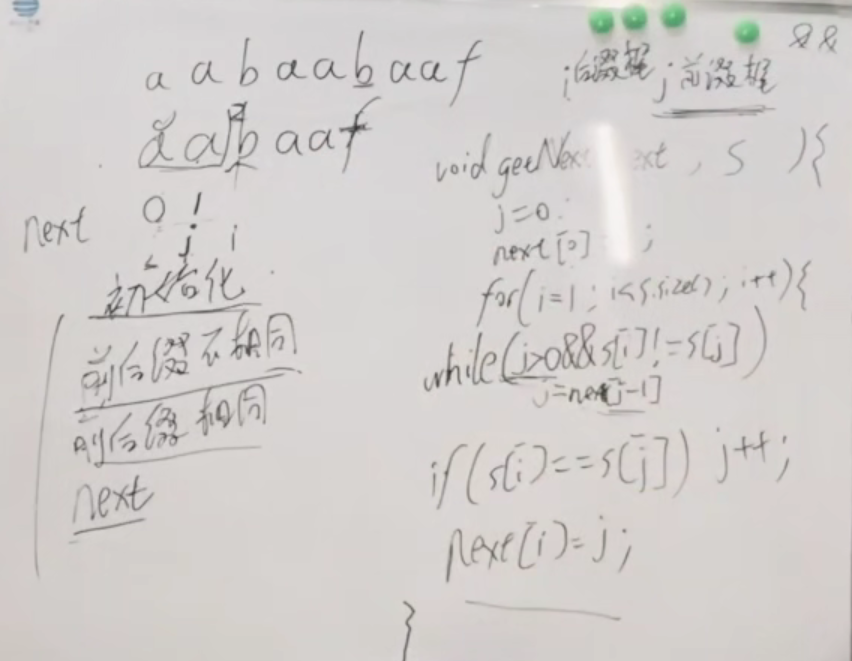 &&
a a b a a b a a f
i 后缀尾 j 前缀尾
a a b a a f
next 0 1
j i
初始化
前后缀不相同
前后缀相同
next
void getNext(next, s ){
j=0
next[0] ;
for(i=1; i<s.size(); i++){
while(j>0&&s[i]!=s[j])
j=next[j-1]
if(s[i]==s[j]) j++;
next[i]=j;
}